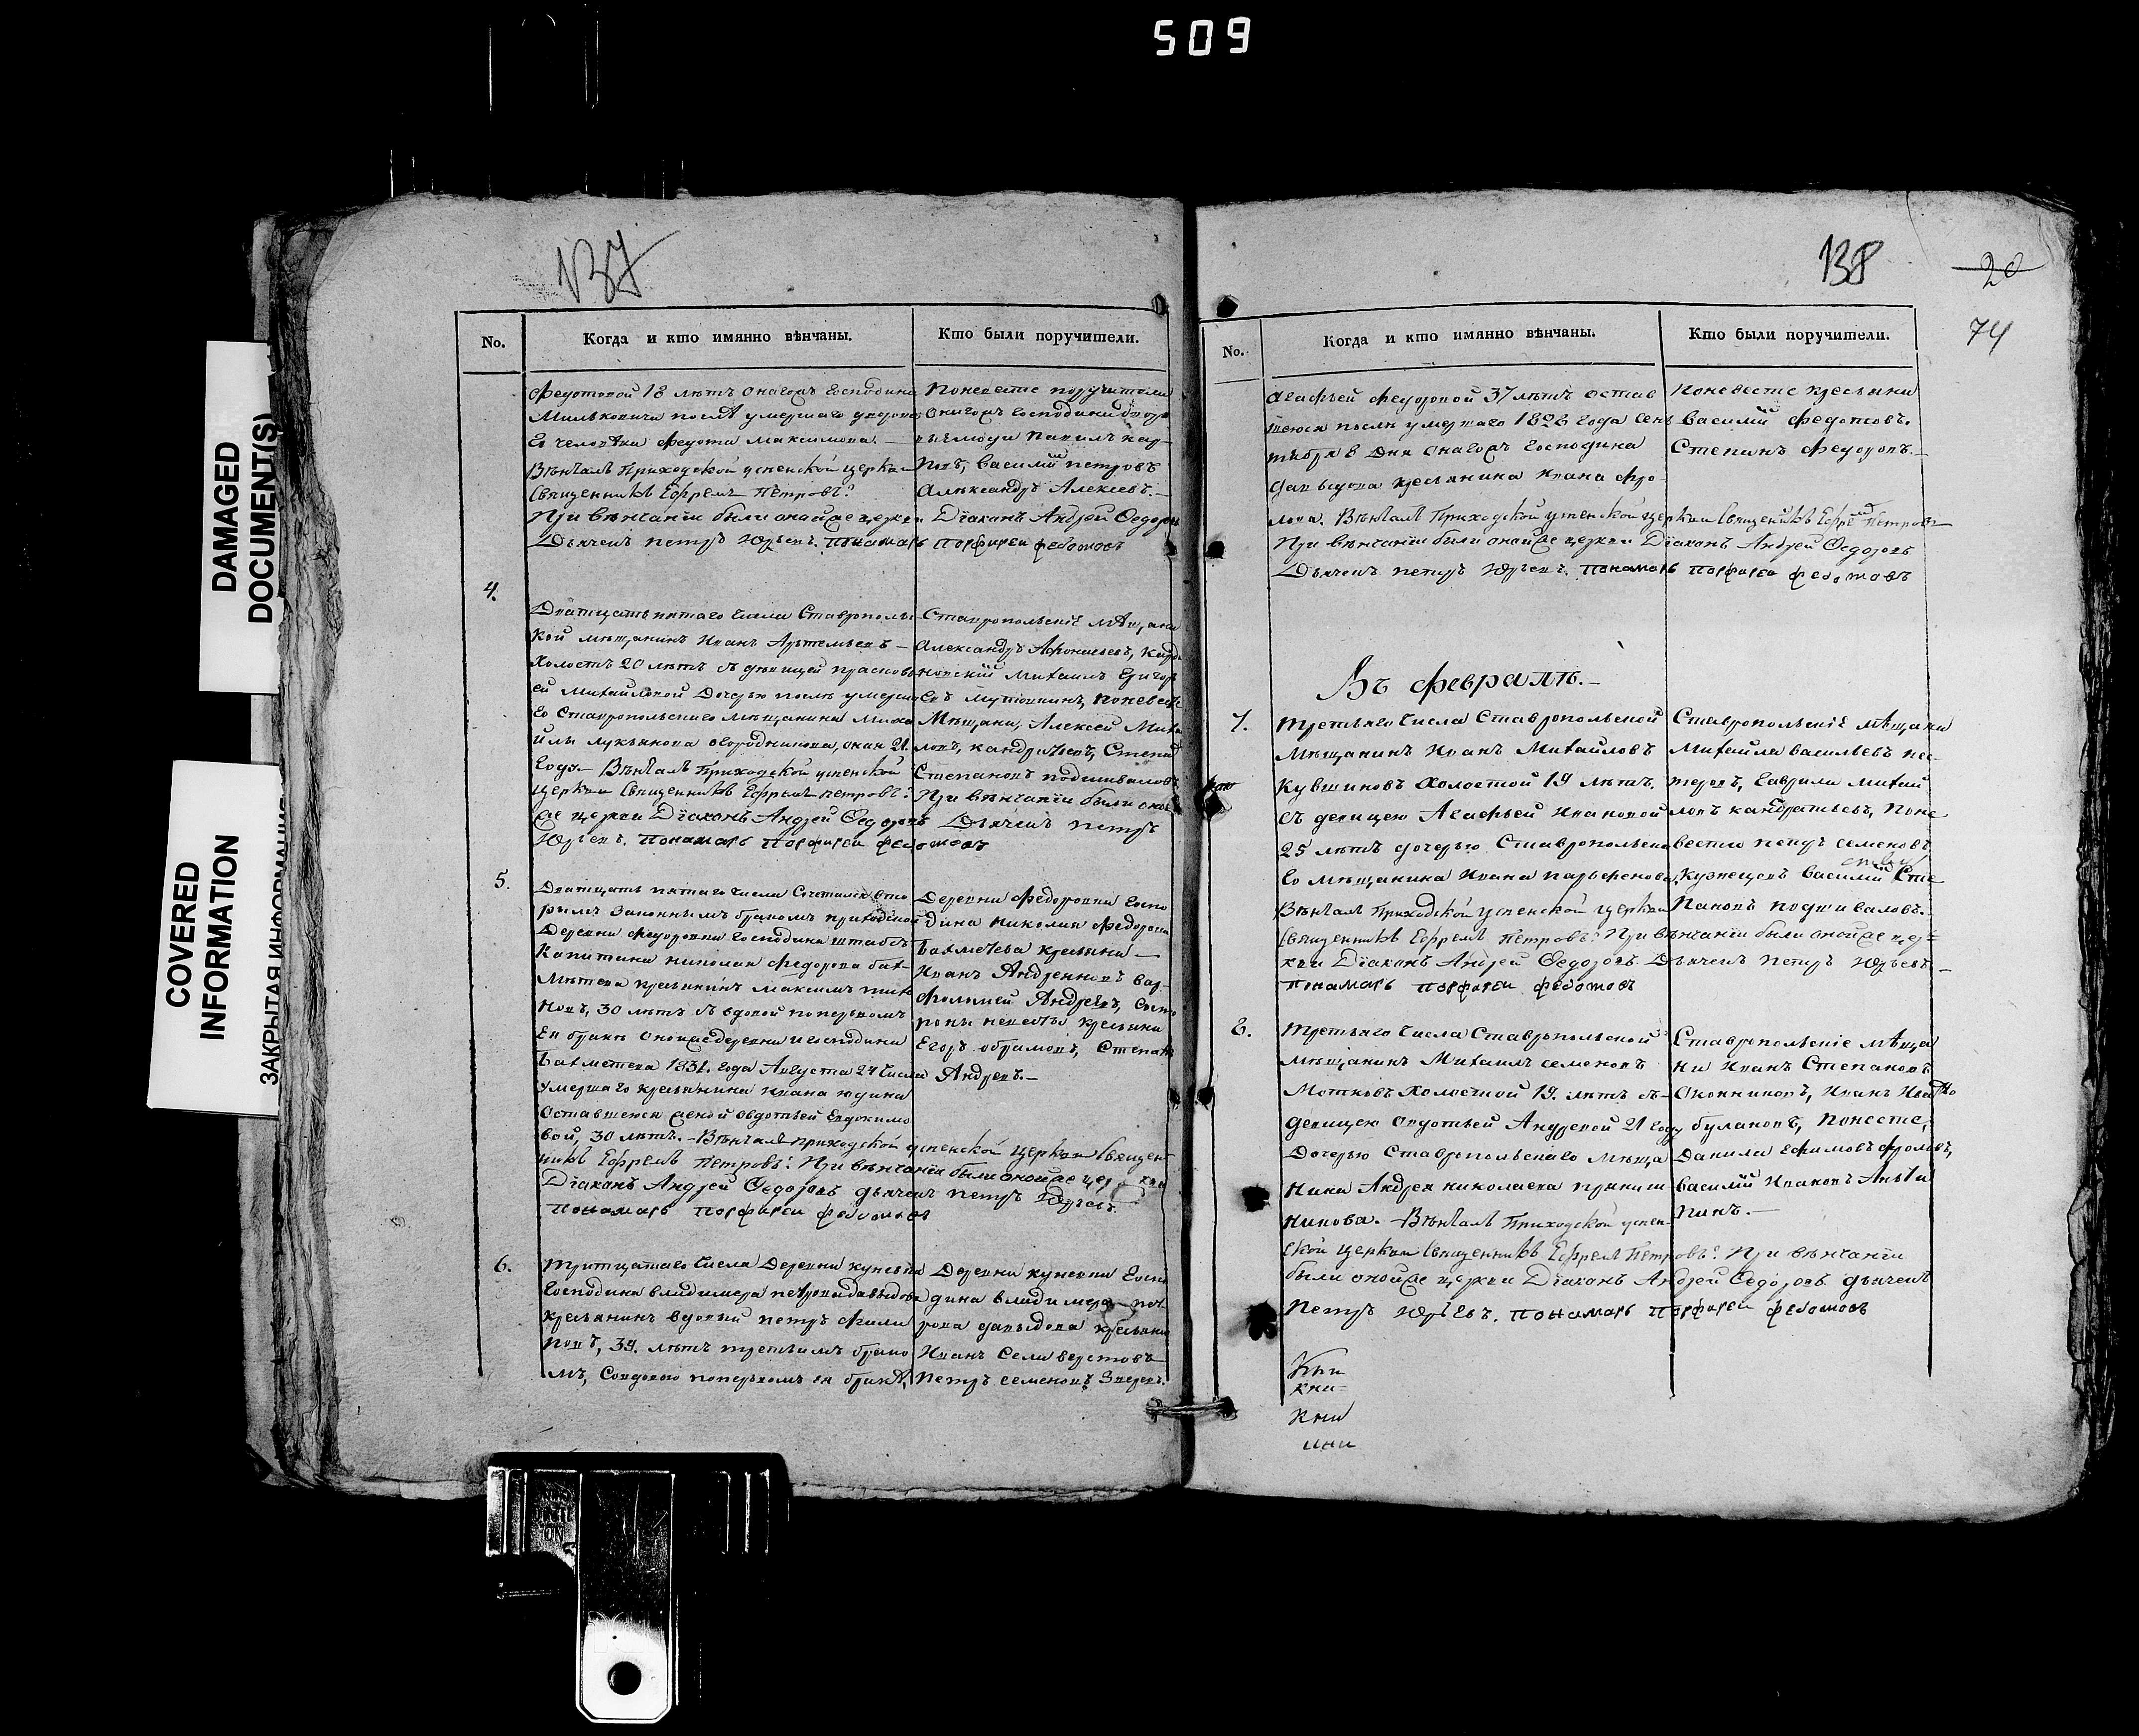 509
DAMAGED
DOCUMENT(S)
COVERED
INFORMATION
137
No.
Когда и кто имянно вѣнчаны.
Кто были поручители.
Федотовой 18 лѣтъ онагожъ Господина
Мильковича послѣ умершаго дворова
го человѣка Федота Максимова.—
Вѣнчалъ Приходской успенской церкви
Священникъ Ефремъ Петровъ
При вѣнчаніи были онойже церкви Діаконъ Андрей Федоровъ
Дьячекъ петръ Юрьевъ. пономарь порфирей федотовъ
Поневесте поручители
онагожъ Господина дворо
выелюди
повъ, василій петровъ
Александръ Алексеевъ.—
4.
Дватцать пятаго числа Ставрополь
кой мѣщанинъ Иванъ Артемьевъ—
холостъ 20 лѣтъ съ девицей прасковь
ей Михайловой Дочерью послѣ умерша
го Ставропольскаго мѣщанина Миха
йлы лукьянова огородникова, оная 21.
Году— Вѣнчалъ Приходской успенской
церкви Священникъ Ефремъ петровъ
При вѣнчаніи были оной
же церкви Діаконъ Андрей Федоровъ Дьячекъ петръ
Юрьевъ. пономарь порфирей федотовъ
Ставропольскіе мѣщани
Александръ Афонасьевъ,
Михаилъ Григорь
евъ поневесте
Мѣщани, Алексей Михаи
ловъ, кандратьевъ, Степанъ
Степановъ подшиваловъ
5.
Дватцать пятаго числа Сочетался вто
рымъ Законнымъ бракомъ приходской
Деревни федоровки Господина штабсъ
Капитана николая Федорова бах
мѣтева крестьянинъ Максимъ тихо
новъ, 30 лѣтъ съ вдовой поперьвомъ
ея бракѣ онойжедеревни игосподина
Бахметева 1831. года Августа 24 числа
умершаго крестьянина Ивана юдина
оставшеюся женой овдотьей Евдокимо
вой, 30 лѣтъ.—Вѣнчалъ приходской успенской церкви Священ
никъ Ефремъ Петровъ При вѣнчаніи были онойже церкви
Діаконъ Андрей Федоровъ дьячекъ петръ Юрьевъ.
пономарь порфирей федотовъ
Деревни федоровки Госпо
дина николая федорова
Бахмечева крестьяни—
Иванъ Андреяновъ вар
фоломей Андреевъ, Состо
роны невесты крестьяни
Егоръ обрамовъ, Степанъ
Андреевъ.—
6.
Тритцатаго числа Деревни кунеевки
Господина владимера петрова давыдова
крестьянинъ вдовый петръ фили
повъ, 39. лѣтъ третьимъ брако
мъ, Совдовою поперьвомъ ея бракѣ,
Деревни кунеевки Госпо
дина владимера пет
рова давыдова крестьяни
Иванъ Селиверстовъ
Петръ семеновъ Зверевъ.
138
20
74
No.
Когда и кто имянно вѣнчаны.
Кто были поручители.
Агафьей федоровой 37 лѣтъ остав
шеюся послѣ умершаго 1826 года Сен
тября 8 Дня онагожъ Господина
Давыдова крестьянина Ивана фро
лова. Вѣнчалъ Приходской успенской церкви Священникъ Ефремъ Петровъ
При вѣнчаніи были онойже церкви Діаконъ Андрей Федоровъ
Дьячекъ петръ Юрьевъ. пономарь порфирей федотовъ
Поневесте крестьяни
василий федотовъ.
Степанъ федоровъ.—
Въ февралѣ.—
7.
Третьяго числа Ставропольской
Мѣщанинъ Иванъ Михайловъ
Кувшиновъ холостой 19 лѣтъ.
съ девицею Агафьей Ивановой
25 лѣтъ дочерью Ставропольска
го мѣщанина Ивана парфенова.
Вѣнчалъ Приходской успенской церкви
Священникъ Ефремъ Петровъ При вѣнчаніи были онойже цер
кви Діаконъ Андрей Федоровъ Дьячекъ петръ Юрьевъ—
пономарь порфирей федотовъ
Ставропольскіе мѣщани
Михаила васильевъ нес
теровъ, Гаврила михай
ловъ кандратьевъ, поне
весте петръ семеновъ
кузнецовъ василий Сте
пановъ подшиваловъ.
8.
Третьяго числа Ставропольской
мѣщанинъ Михаилъ семеновъ
Мотковъ холостой 19. лѣтъ съ
девицею овдотьей Андреевой 21 году
Дочерью Ставропольскаго мѣща
нина Андрея николаева
Вѣнчалъ Приходской успен
ской церкви Священникъ Ефремъ Петровъ При вѣнчаніи
были онойже церкви Діаконъ Андрей Федоровъ дьячекъ
петръ Юрьевъ. пономарь порфирей федотовъ
Ставропольскіе мѣща
ни Иванъ Степановъ
Оконниковъ, Иванъ
булановъ, Поневесте,
Данила Ефимовъ фроловъ,
василий Ивановъ
кни
кни